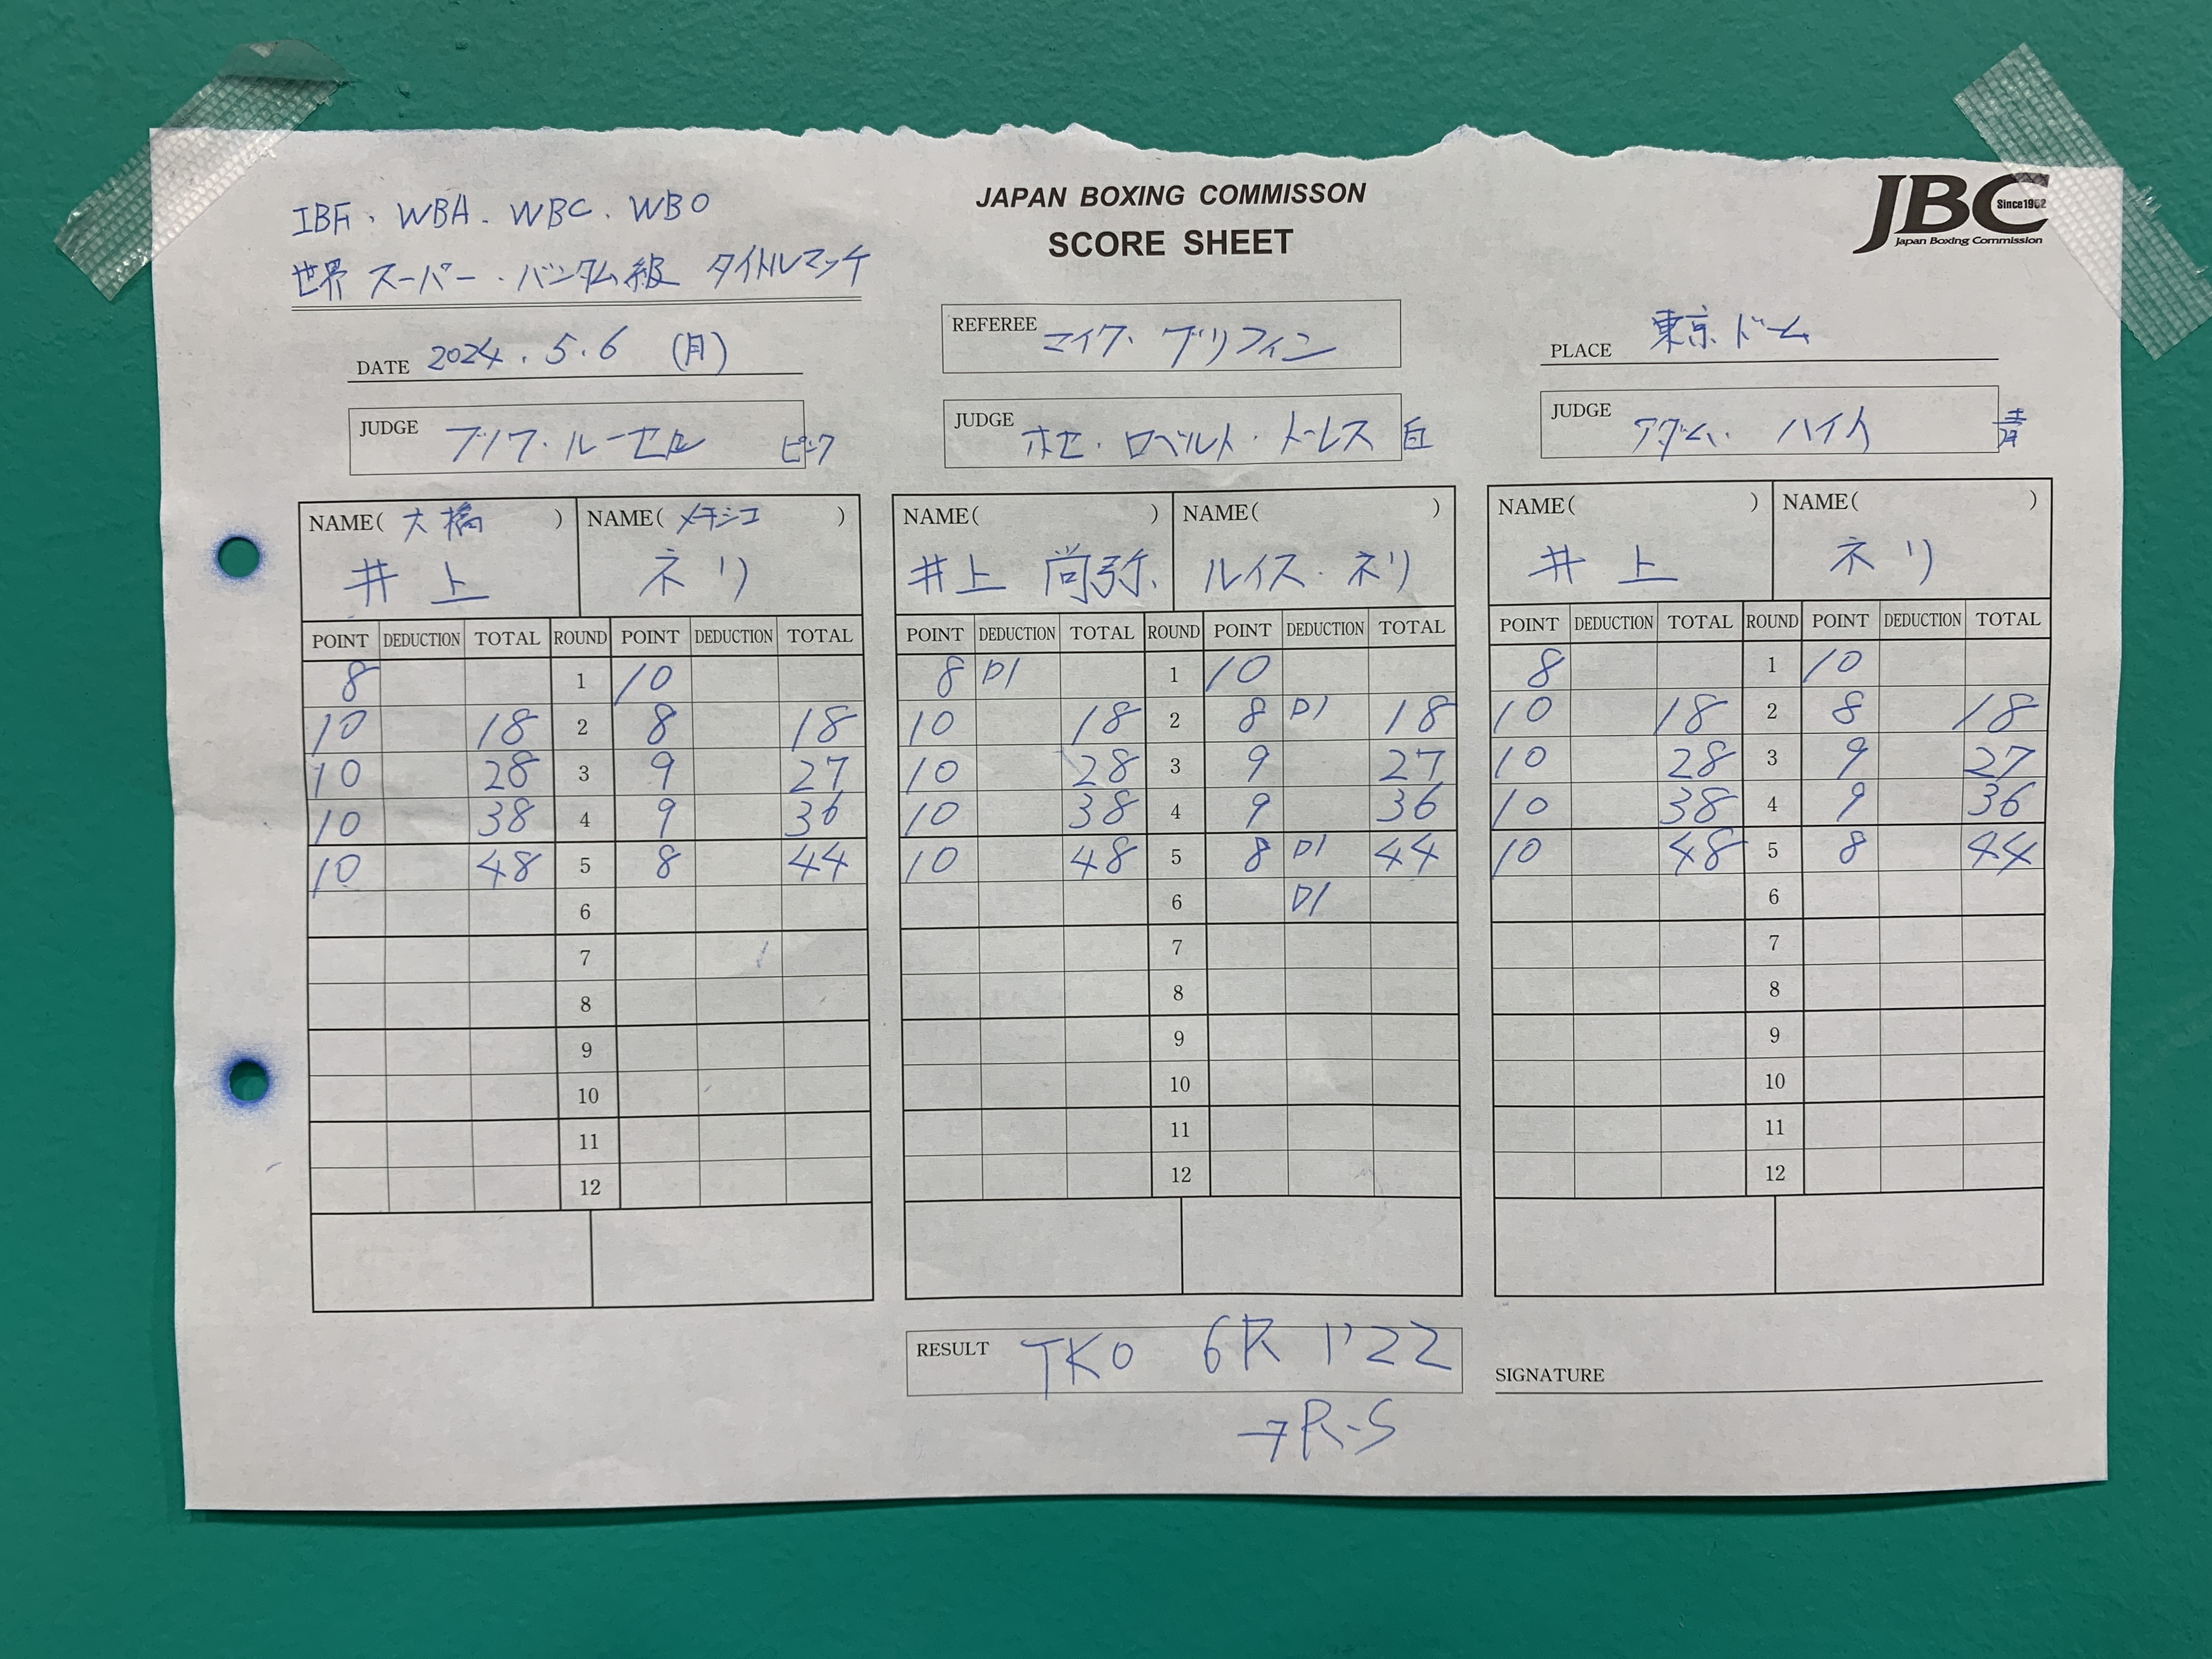 IBF. WBA. WBC. WBO
世界 スーパー・バンタム級 タイトルマッチ
JAPAN BOXING COMMISSON
SCORE SHEET
JBC
Since1952
Japan Boxing Commission
DATE 2024.5.6 (月)
REFEREE マイク・グリフィン
PLACE 東京ドーム
JUDGE ブノワ・ルーセル ピンク
JUDGE ホセ・ロベルト・トーレス 白
JUDGE アダム・ハイト 青
NAME( 大橋 ) NAME( メキシコ ) NAME( ) NAME( ) NAME( ) NAME( )
井上 ネリ 井上 尚弥 ルイス・ネリ 井上 ネリ
POINT DEDUCTION TOTAL ROUND POINT DEDUCTION TOTAL POINT DEDUCTION TOTAL ROUND POINT DEDUCTION TOTAL POINT DEDUCTION TOTAL ROUND POINT DEDUCTION TOTAL
8 1 10 8 D1 1 10 8 1 10
10 18 2 8 18 10 18 2 8 D1 18 10 18 2 8 18
10 28 3 9 27 10 28 3 9 27 10 28 3 9 27
10 38 4 9 36 10 38 4 9 36 10 38 4 9 36
10 48 5 8 44 10 48 5 8 D1 44 10 48 5 8 44
6 6 D1 6
7 7 7
8 8 8
9 9 9
10 10 10
11 11 11
12 12 12
RESULT TKO 6R 1'22
→R-S
SIGNATURE